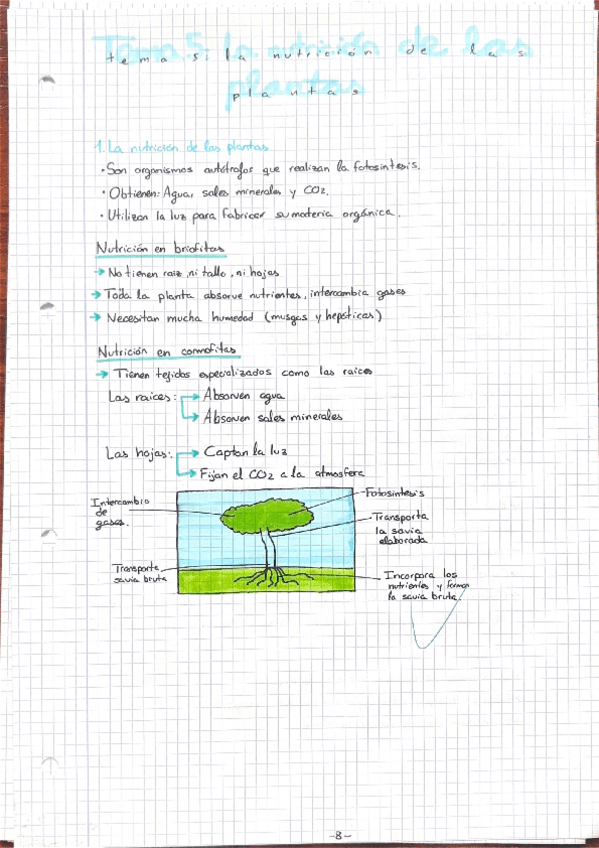 Tema 5: La nutrición de las
plantas
1. La nutrición de las plantas
• Son organismos autótrofos que realizan la fotosíntesis.
• Obtienen: Agua, sales minerales y CO2.
• Utilizan la luz para fabricar su materia orgánica.
Nutrición en briofitas
→ No tienen raíz, ni tallo, ni hojas
→ Toda la planta absorve nutrientes, intercambia gases
→ Necesitan mucha humedad (musgos y hepáticas)
Nutrición en cormofitas
→ Tienen tejidos especializados como las raíces
Las raíces: → Absorven agua
→ Absorven sales minerales
Las hojas: → Captan la luz
→ Fijan el CO2 a la atmosfera
Intercambio
de
gases.
Fotosíntesis
Transporta
la savia
elaborada
Transporte
savia bruta
Incorpora los
nutrientes y forman
la savia bruta.
-8-